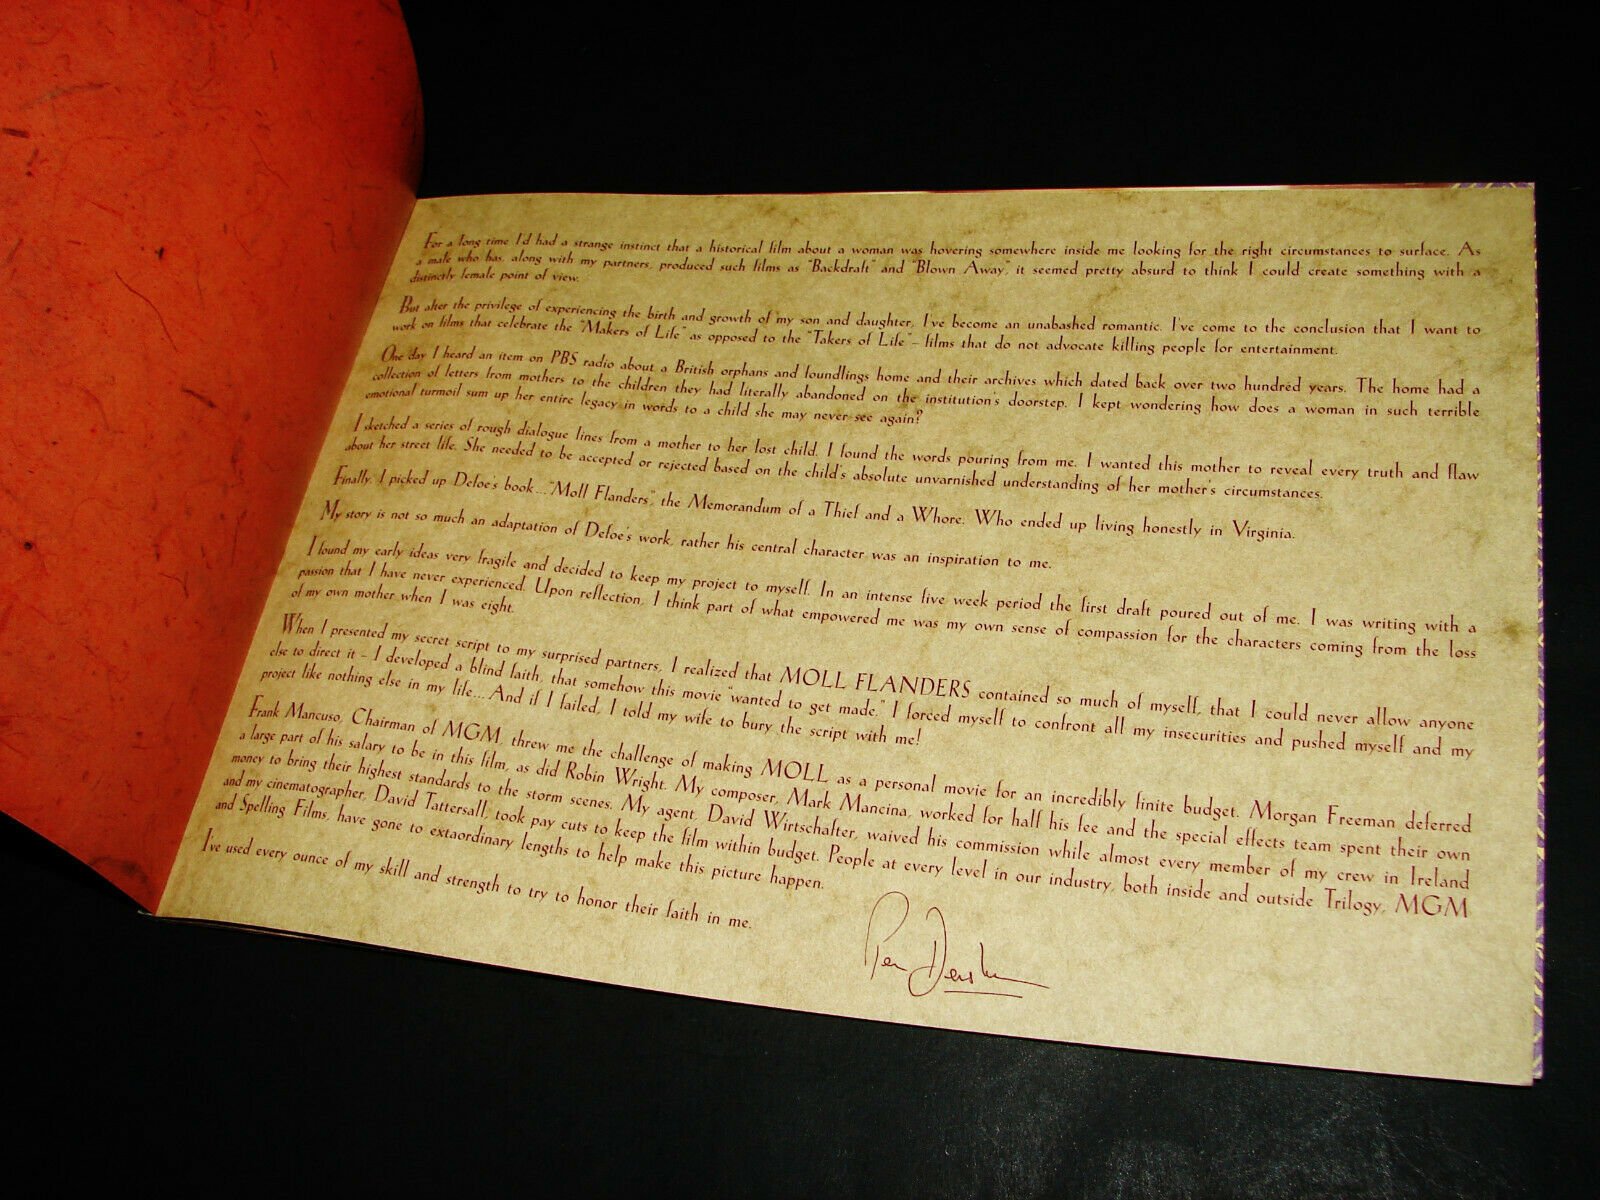 For a long time I'd had a strange instinct that a historical film about a woman was hovering somewhere inside me looking for the right circumstances to surface. As
a male who has, along with my partners, produced such films as "Backdraft" and "Blown Away," it seemed pretty absurd to think I could create something with a
distinctly female point of view.
But after the privilege of experiencing the birth and growth of my son and daughter, I've become an unabashed romantic. I've come to the conclusion that I want to
work on films that celebrate the "Makers of Life" as opposed to the "Takers of Life" – films that do not advocate killing people for entertainment.
One day I heard an item on PBS radio about a British orphans and foundlings home and their archives which dated back over two hundred years. The home had a
collection of letters from mothers to the children they had literally abandoned on the institution's doorstep. I kept wondering how does a woman in such terrible
emotional turmoil sum up her entire legacy in words to a child she may never see again?
I sketched a series of rough dialogue lines from a mother to her lost child. I found the words pouring from me. I wanted this mother to reveal every truth and flaw
about her street life. She needed to be accepted or rejected based on the child's absolute unvarnished understanding of her mother's circumstances.
Finally, I picked up Defoe's book..."Moll Flanders", the Memorandum of a Thief and a Whore. Who ended up living honestly in Virginia.
My story is not so much an adaptation of Defoe's work, rather his central character was an inspiration to me.
I found my early ideas very fragile and decided to keep my project to myself. In an intense five week period the first draft poured out of me. I was writing with a
passion that I have never experienced. Upon reflection, I think part of what empowered me was my own sense of compassion for the characters coming from the loss
of my own mother when I was eight.
When I presented my secret script to my surprised partners, I realized that MOLL FLANDERS contained so much of myself, that I could never allow anyone
else to direct it – I developed a blind faith, that somehow this movie "wanted to get made." I forced myself to confront all my insecurities and pushed myself and my
project like nothing else in my life... And if I failed, I told my wife to bury the script with me!
Frank Mancuso, Chairman of MGM, threw me the challenge of making MOLL as a personal movie for an incredibly finite budget. Morgan Freeman deferred
a large part of his salary to be in this film, as did Robin Wright. My composer, Mark Mancina, worked for half his fee and the special effects team spent their own
money to bring their highest standards to the storm scenes. My agent, David Wirtschafter, waived his commission while almost every member of my crew in Ireland
and my cinematographer, David Tattersall, took pay cuts to keep the film within budget. People at every level in our industry, both inside and outside Trilogy, MGM
and Spelling Films, have gone to extaordinary lengths to help make this picture happen.
I've used every ounce of my skill and strength to try to honor their faith in me.
Pen Densham